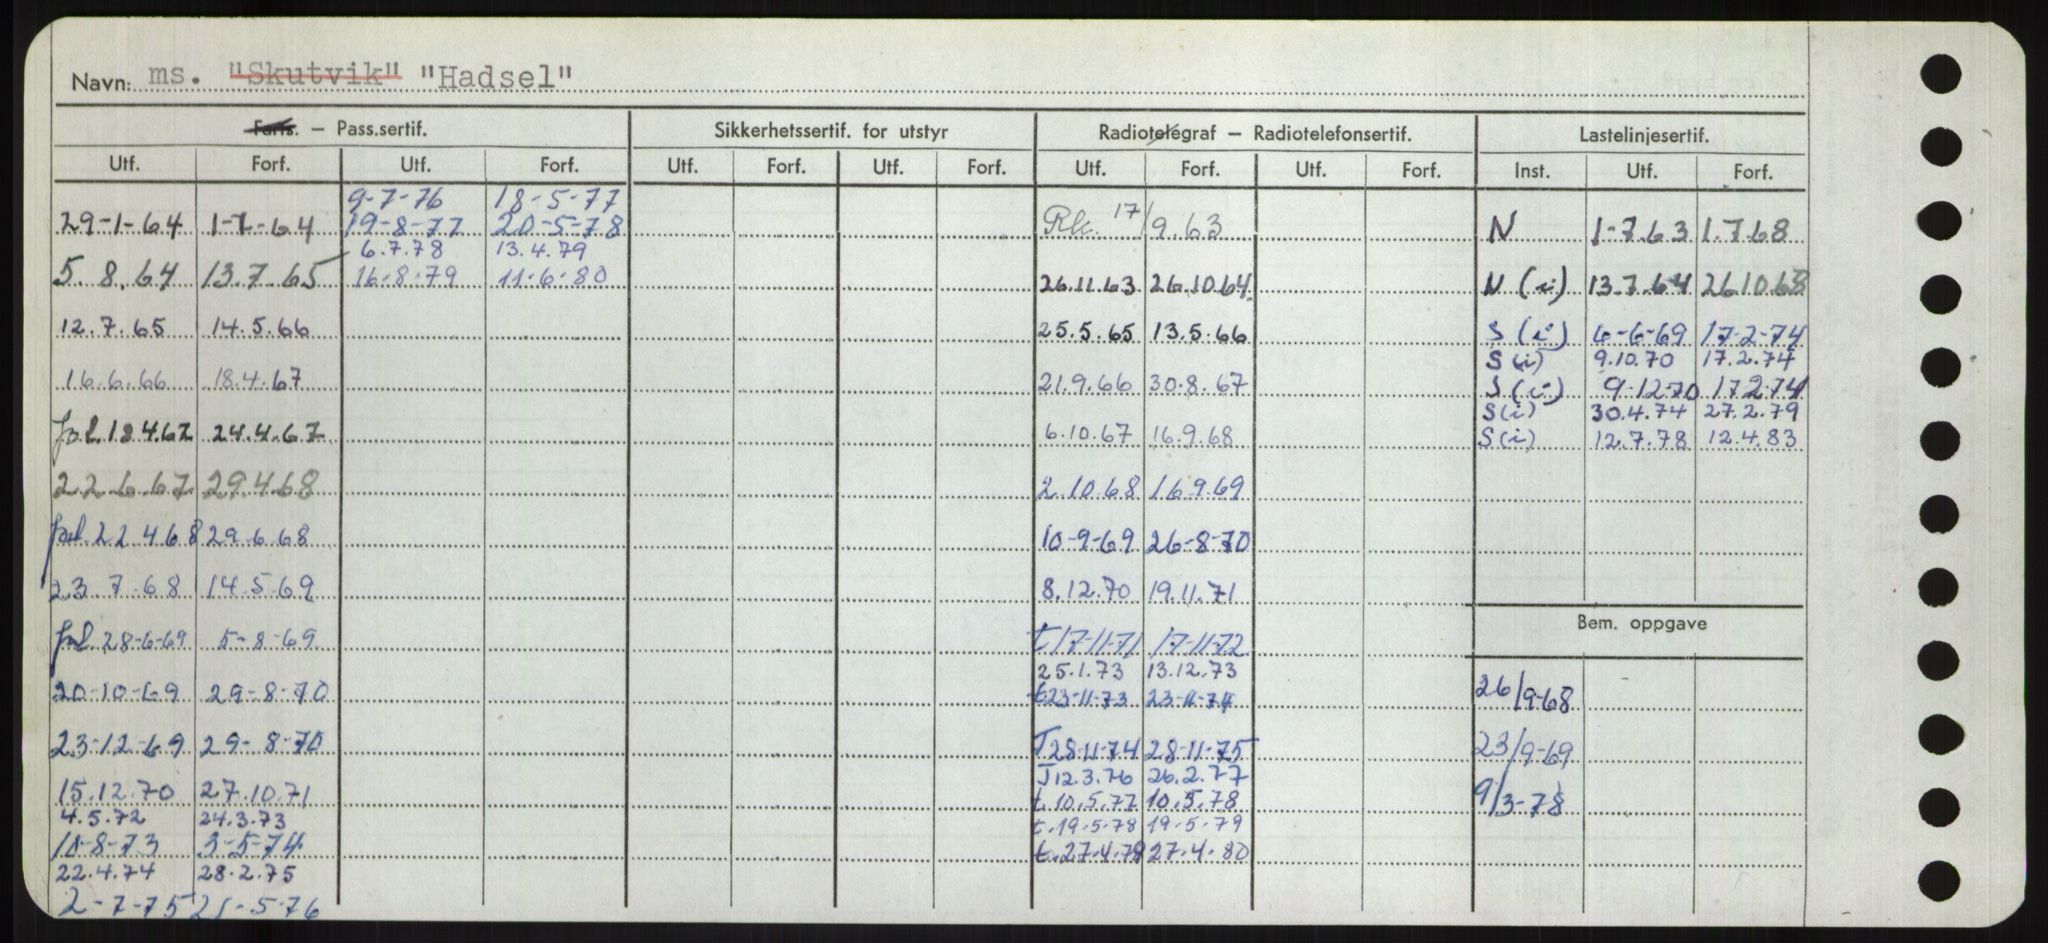 Navn: ms. "Skutvik" "Hadsel"
Farts. – Pass.sertif. Sikkerhetssertif. for utstyr Radiotelegraf – Radiotelefonsertif. Lastelinjesertif.
Utf. Forf. Utf. Forf. Utf. Forf. Utf. Forf. Utf. Forf. Utf. Forf. Inst. Utf. Forf.
9-7-76 18-5-77
29-1-64 1-7-64 19-8-77 20-5-78 17/9.63 N 1-7.63 1.7.68
6.7.78 13.4.79
5.8.64 13.7.65 16-8-79 11-6-80 26.11.63 26.10.64 N (i) 13.7.64 26.10.68
12.7.65 14.5.66 25.5.65 13.5.66 S (i) 6-6-69 17-2-74
S (i) 9.10.70 17.2.74
16.6.66 18.4.67 21.9.66 30.8.67 S (i) 9-12-70 17.2.74
S (i) 30.4.74 27.2.79
forl. 18.4.67 24.4.67 6.10.67 16.9.68 S (i) 12.7.78 12.4.83
22.6.67 29.4.68 2.10.68 16.9.69
forl. 22.4.68 29.6.68 10-9-69 26-8-70
23.7.68 14.5.69 8.12.70 19.11.71
Bem. oppgave
forl. 28-6-69 5-8-69 t 17-11-71 17-11-72
25.1.73 13.12.73
20-10-69 29-8-70 t 23-11-73 23-11-74 26/9-68
23-12-69 29-8-70 T 28-11-74 28-11-75 23/9-69
T 12.3.76 26.2.77
15.12.70 27.10.71 t. 10.5.77 10.5.78 9/3-78
4.5.72 24.3.73 t. 19.5.78 19.5.79
10-8-73 3-5-74 t. 27.4.79 27.4.80
22.4.74 28.2.75
2-7-75 21-5-76